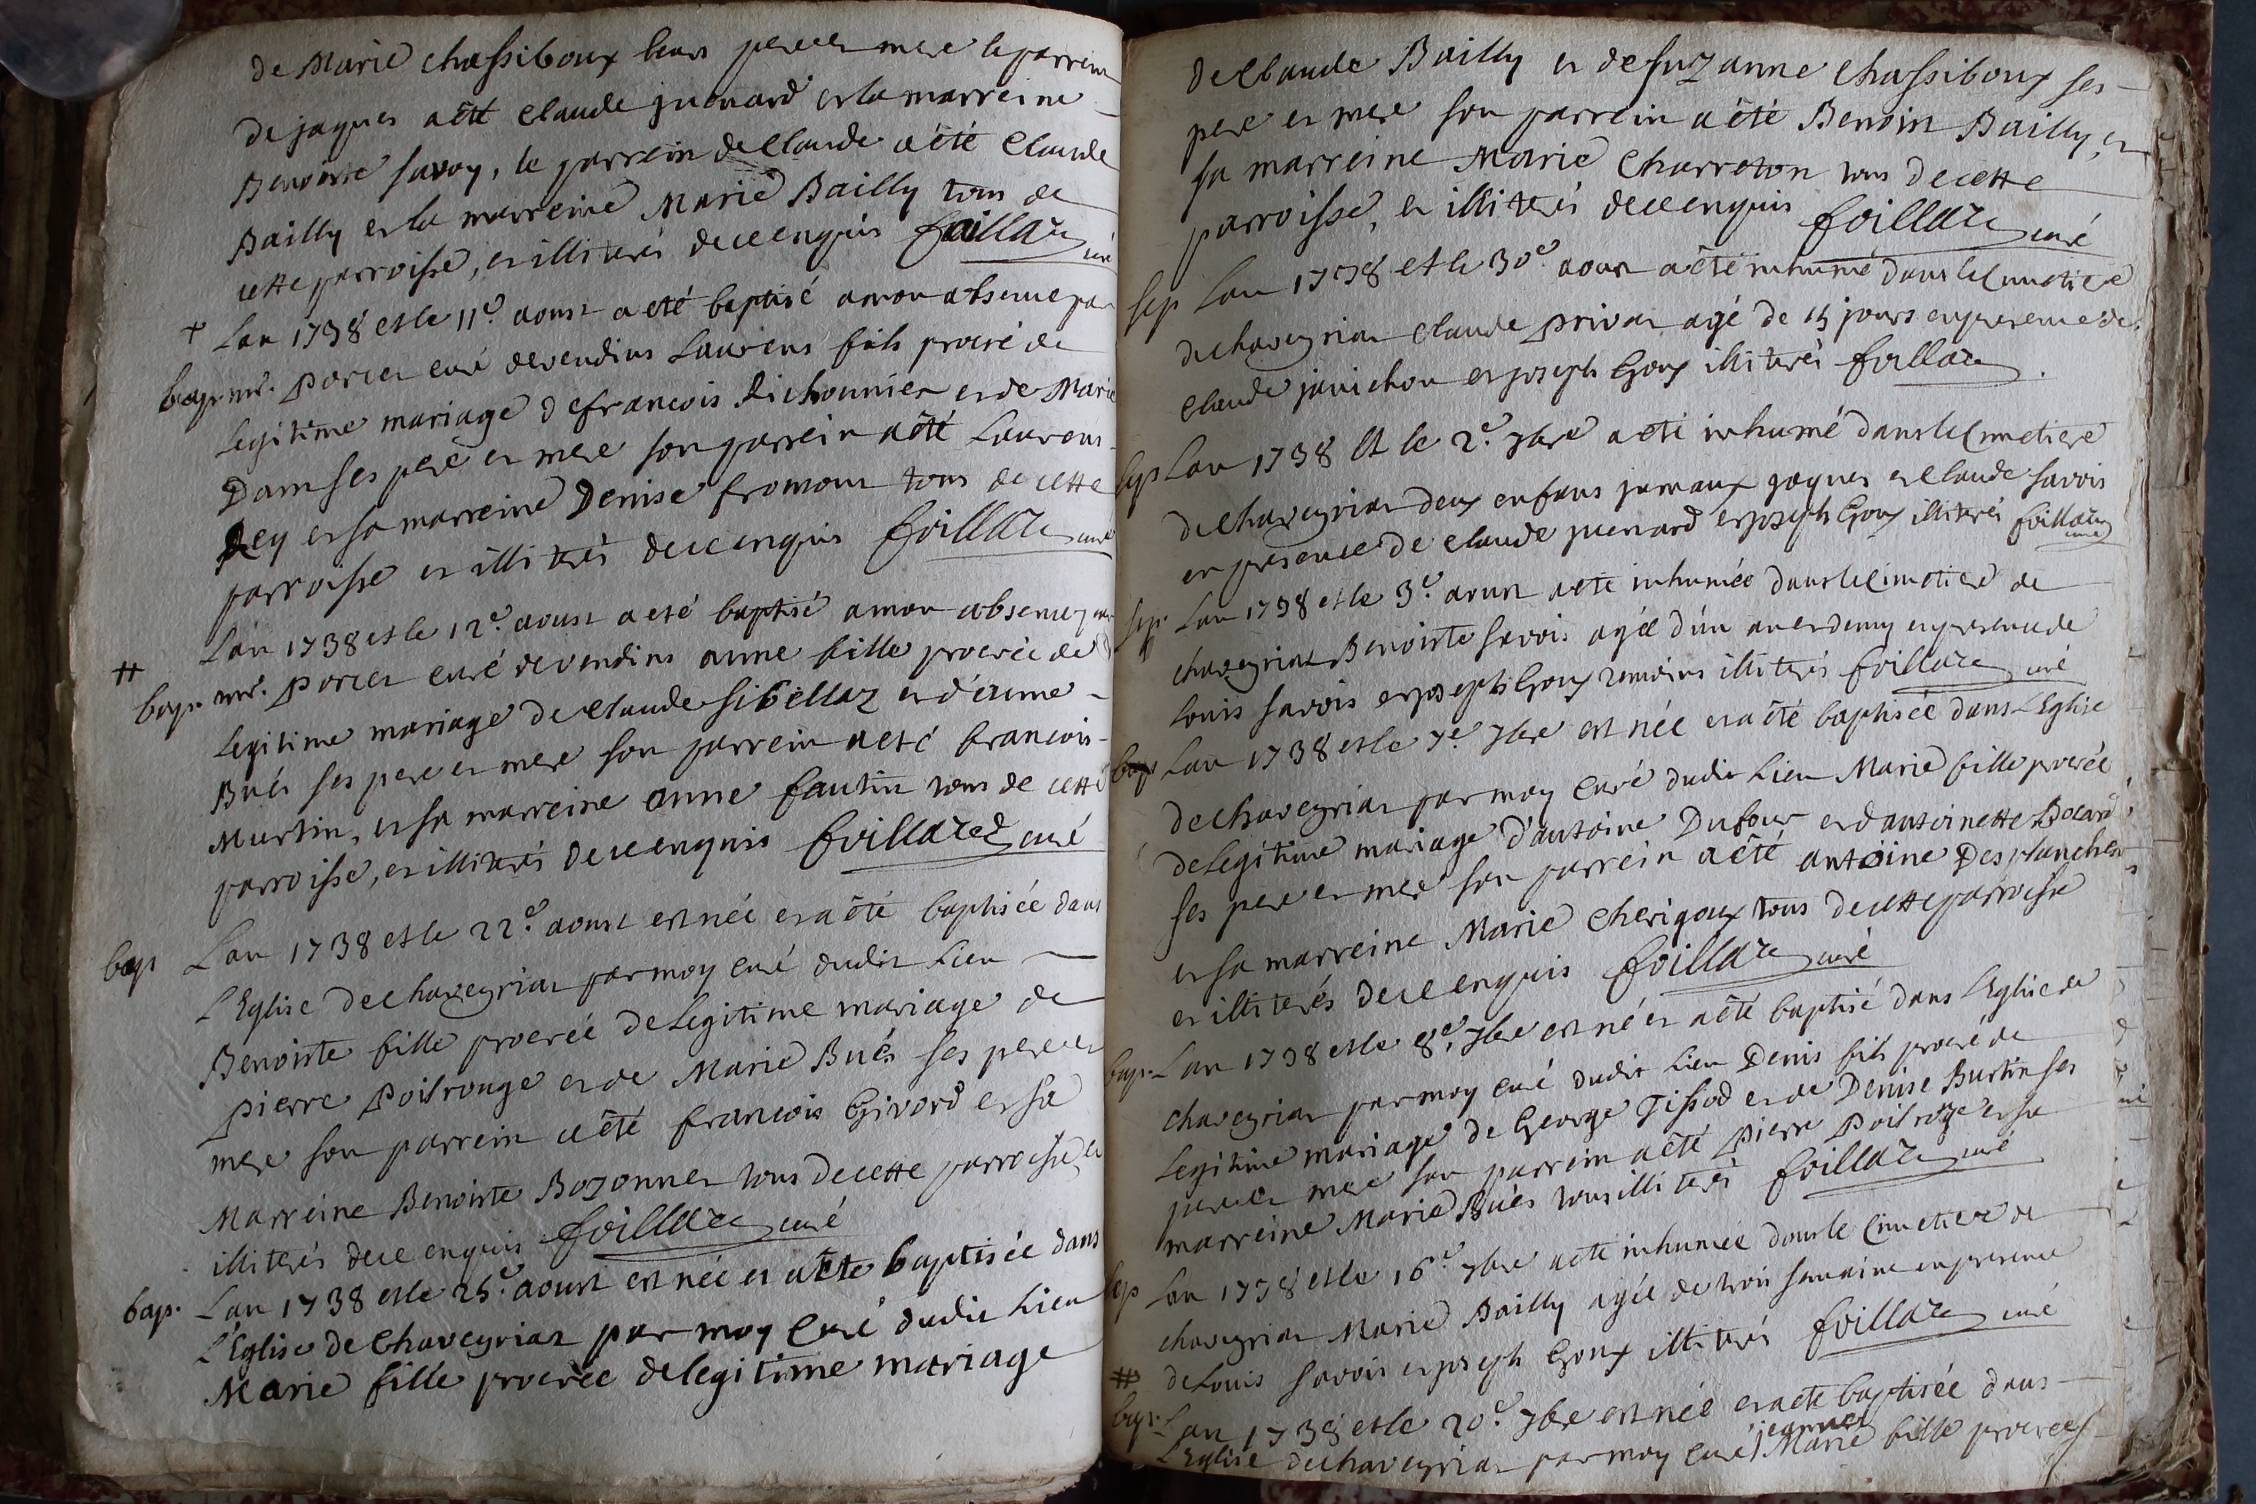 de Marie chassiboux leurs pere et mere le parrein
de jaques a été Claude juenard et la marreine
Benoiste savoy, le parrein de Claude a été Claude
Bailly et la marreine Marie Bailly tous de
cette parroisse, et illiterés de ce enquis foillaz curé
+ Lan 1738 et le 11e. aoust a eté baptisé a mon absence par
bap. mr. porcet curé de vendins Laurens fils procré de
legitime mariage de francois Richonnier et de Marie
Dam ses pere et mere son parrein a été Laurens
Rey et sa marreine Denise fromont tous de cette
parroisse et illiterés de ce enquis foillaz curé
# Lan 1738 et le 12e. aoust a eté baptisé a mon absence par
bap. mr. porcet curé de vendins anne fille procréé de
legitime mariage de claude sibellaz et d'anne
Bués ses pere et mere son parrein a eté francois
Murtin, et sa marreine anne fautin tous de cette
parroisse, et illiterés de ce enquis foillazet curé
bap. Lan 1738 et le 22e. aoust est née et a été baptisée dans
L'Eglise de chaveyriat par moy curé dudit Lieu
Benoiste fille procréé de Legitime mariage de
pierre Poilrouge et de Marie Bués ses pere et
mere son parrein a été francois Givord et sa
Marreine Benoiste Bozonnet tous de cette parroisse, et
illiterés de ce enquis foillaz curé
bap. Lan 1738 et le 25e. aoust est née et a été baptisée dans
L'Eglise de Chaveyriat par moy curé dudit Lieu
Marie fille procréé de legitime mariage
de Claude Bailly et de suzanne chassiboux ses
pere et mere son parrein a été Benoit Bailly, et
sa marreine Marie Charreton tous de cette
parroisse, et illiterés de ce enquis foillaz curé
sep Lan 1738 et le 30e. aoust a été inhumé dans le Cimetiere
de chaveyriat claude privat agé de 15 jours en presence de
claude janichon et joseph Goux illiterés foillaz
sep Lan 1738 et le 2e. 7bre a eté inhumé dans le Cimetiere
de chaveyriat deux enfans jumaux jaques et Claude savois
en presence de claude juenard et joseph Goux illiterés foillaz curé
sep. Lan 1738 et le 3e. aoust a eté inhumée dans le Cimetiere de
chaveyriat Benoiste savois agée d'un an et demy en presence de
Louis savois et joseph Goux temoins illiterés foillaz curé
bap Lan 1738 et le 7e. 7bre est née et a été baptisée dans L'Eglise
de chaveyriat par moy curé dudit Lieu Marie fille procréé
de Legitime mariage d'antoine Dufour et d'antoinette Bocard
ses pere et mere son parrein a été antoine Desplanches
et sa marreine Marie Cherigoux tous de cette parroisse
et illiterés de ce enquis foillaz curé
bap. Lan 1738 et le 8e. 7bre est né et a été baptisé dans L'Eglise de
chaveyriat par moy curé dudit Lieu Denis fils procré de
Legitime mariage de George Tissod et de Denise Burtin ses
pere et mere son parrein a été pierre Poilroge et sa
marreine Marie Bués tous illiterés foillaz curé
sep Lan 1738 et le 16e. 7bre a eté inhumée dans le Cimetiere de
chaveyriat Marie Bailly agée de trois semaine en presence
de Louis savois et joseph Goux illiterés foillaz curé
#
bap. Lan 1738 et le 20e. 7bre est née et a eté baptisée dans
jeanne
L'Eglise de chaveyriat par moy curé Marie fille procréé